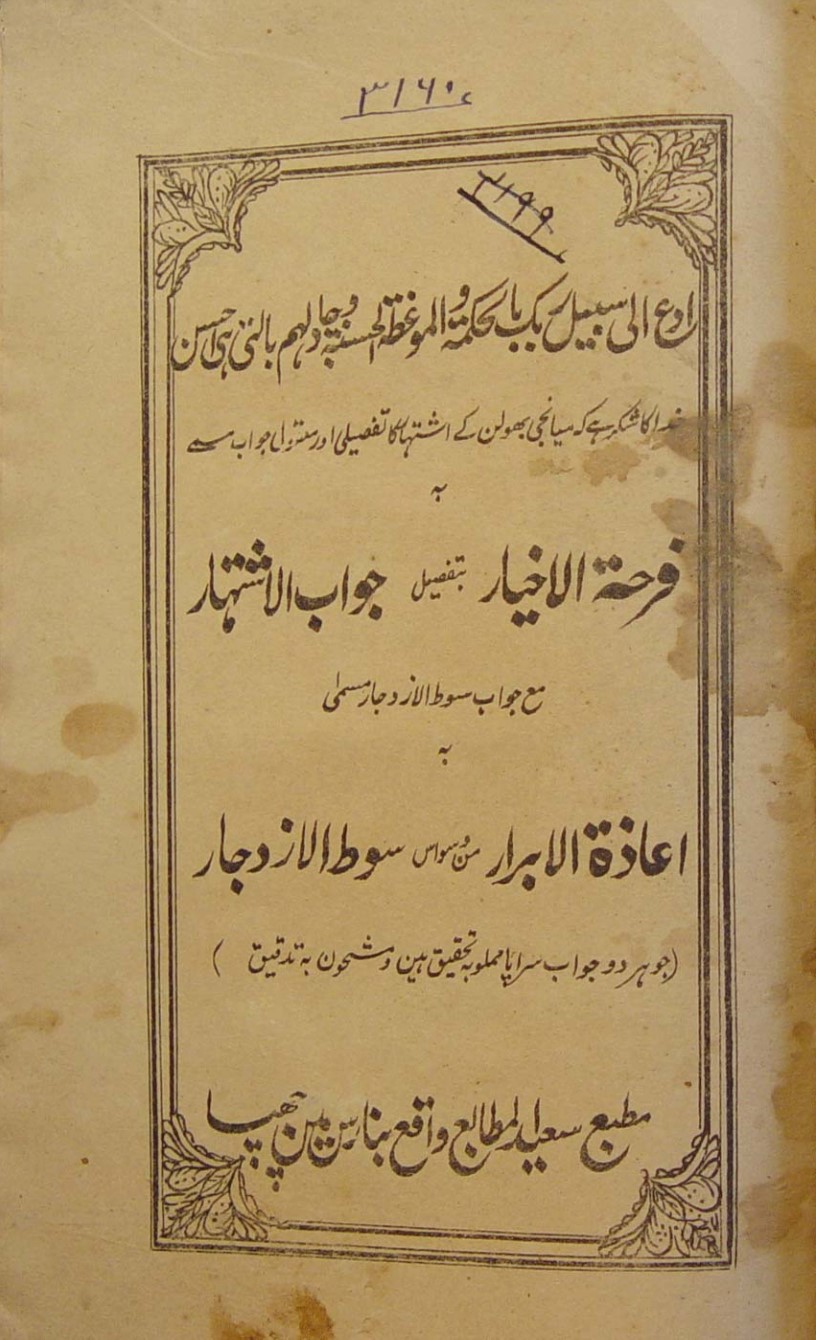 ۳۱۶۰
۲۱۹۹
ادع الی سبیل ربک بالحکمة والموعظة الحسنة وجادلهم بالتی هی احسن
خدا کا شکر ہے کہ میانجی بھولن کے اشتہار کا تفصیلی اور معتزلی جواب مسمے
بہ
فرحة الاخیار بتفصیل جواب الاشتہار
مع جواب سوط الازدجار مسمیٰ
بہ
اعاذة الابرار من وسواس سوط الازدجار
(جو ہر دو جواب سراپا مملو بہ تحقیق ہین و مشحون بہ تدقیق)
مطبع سعید المطابع واقع بنارس مین چھپا